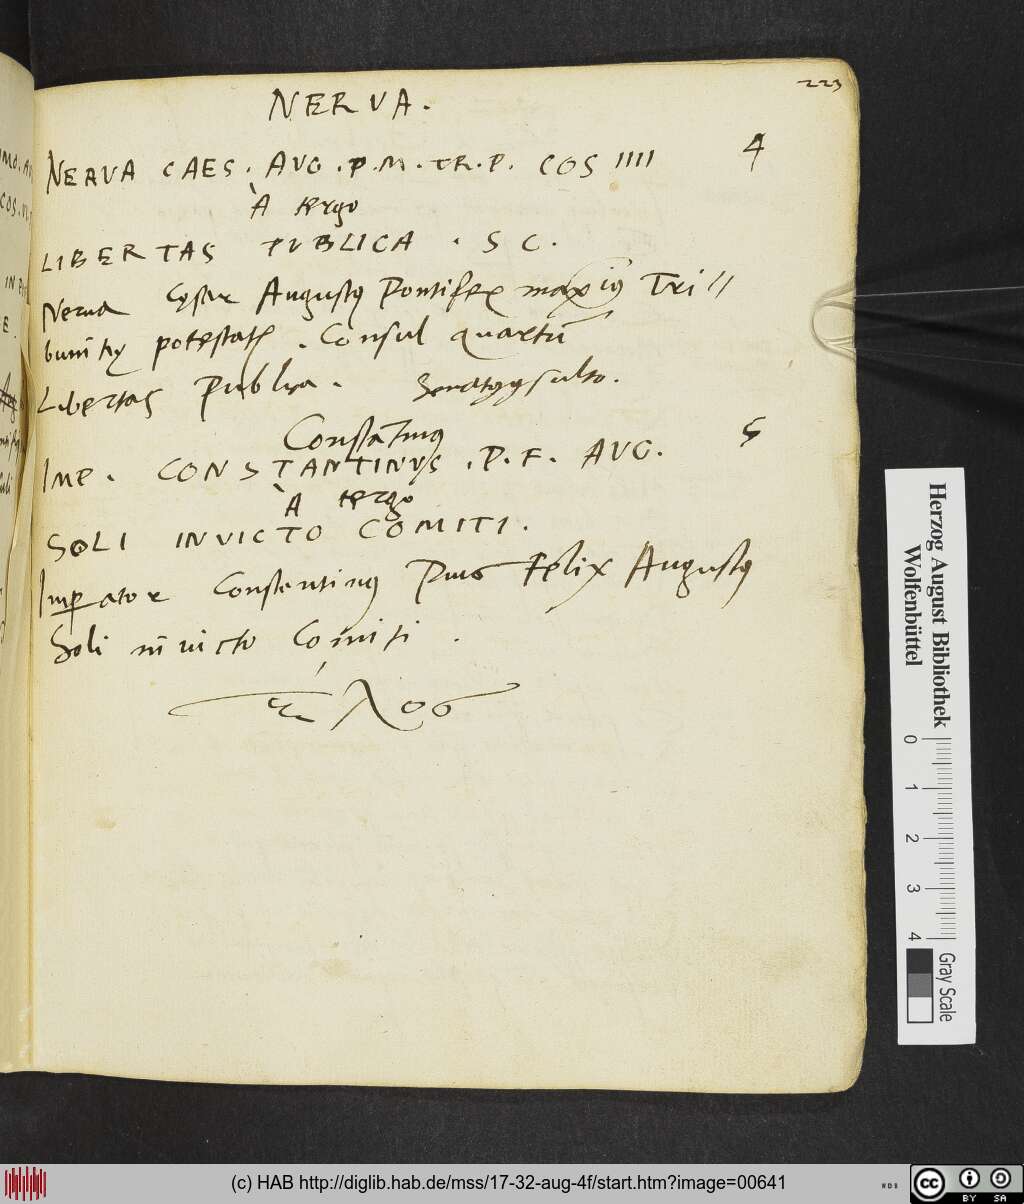 223
NERVA.
NERVA CAES. AVG. P. M. TR. P. COS IIII 4
À tergo
LIBERTAS PVBLICA. S C.
Nerua Cęsar Augustꝰ Pontifex maxiꝰ Tri//
bunitię potestatꝭ. Consul quartū
Libertas Publica. Senatꝰꝯsulto.
Constātinꝰ
IMP. CONSTANTINVS. P. F. AVG. 5
À tergo
SOLI INVICTO COMITI.
Imꝑator Constantinꝰ Pius Felix Augustꝰ
Soli inuicto Comiti.
τέλος
Herzog August Bibliothek
Wolfenbüttel
0 1 2 3 4
Gray Scale
(c) HAB http://diglib.hab.de/mss/17-32-aug-4f/start.htm?image=00641
WDB
cc BY SA